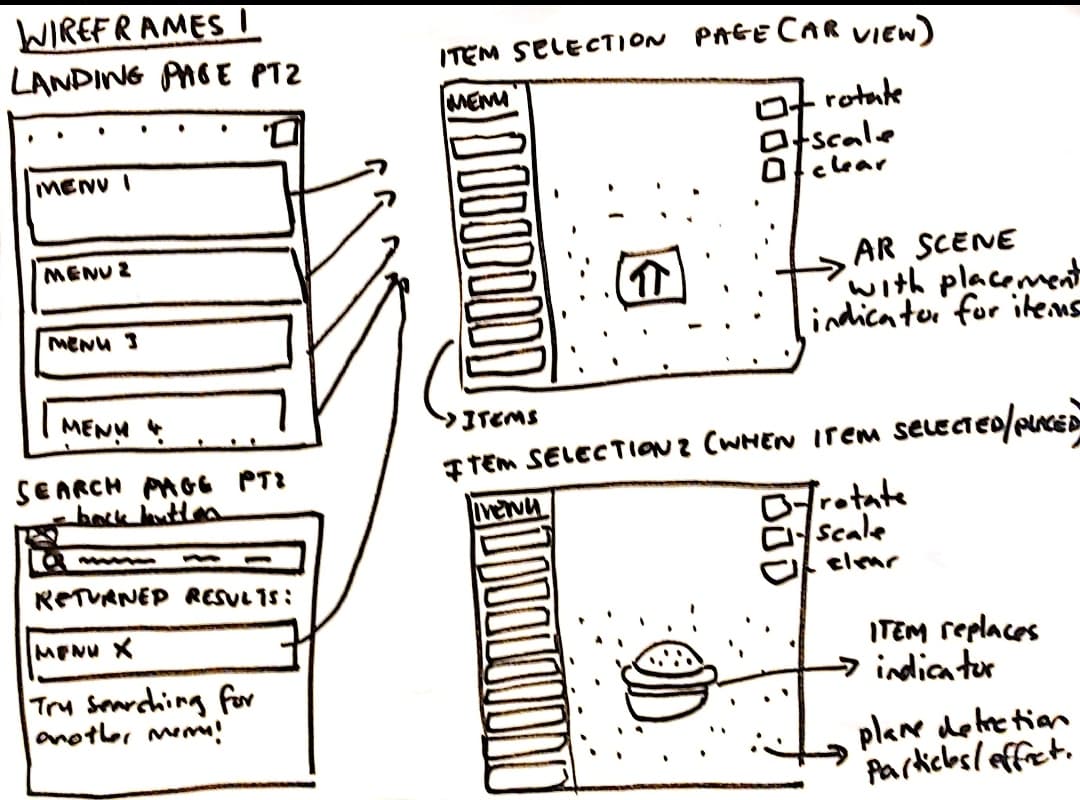 WIREFRAMES 1
LANDING PAGE PT2
MENU 1
MENU 2
MENU 3
MENU 4
SEARCH PAGE PT2
- back button
RETURNED RESULTS:
MENU X
Try searching for
another menu!
ITEM SELECTION PAGE (AR VIEW)
MENU
rotate
scale
clear
AR SCENE
with placement
indicator for items
ITEMS
ITEM SELECTION 2 (WHEN ITEM SELECTED/PLACED)
MENU
rotate
scale
clear
ITEM replaces
indicator
plane detection
Particles/effect.